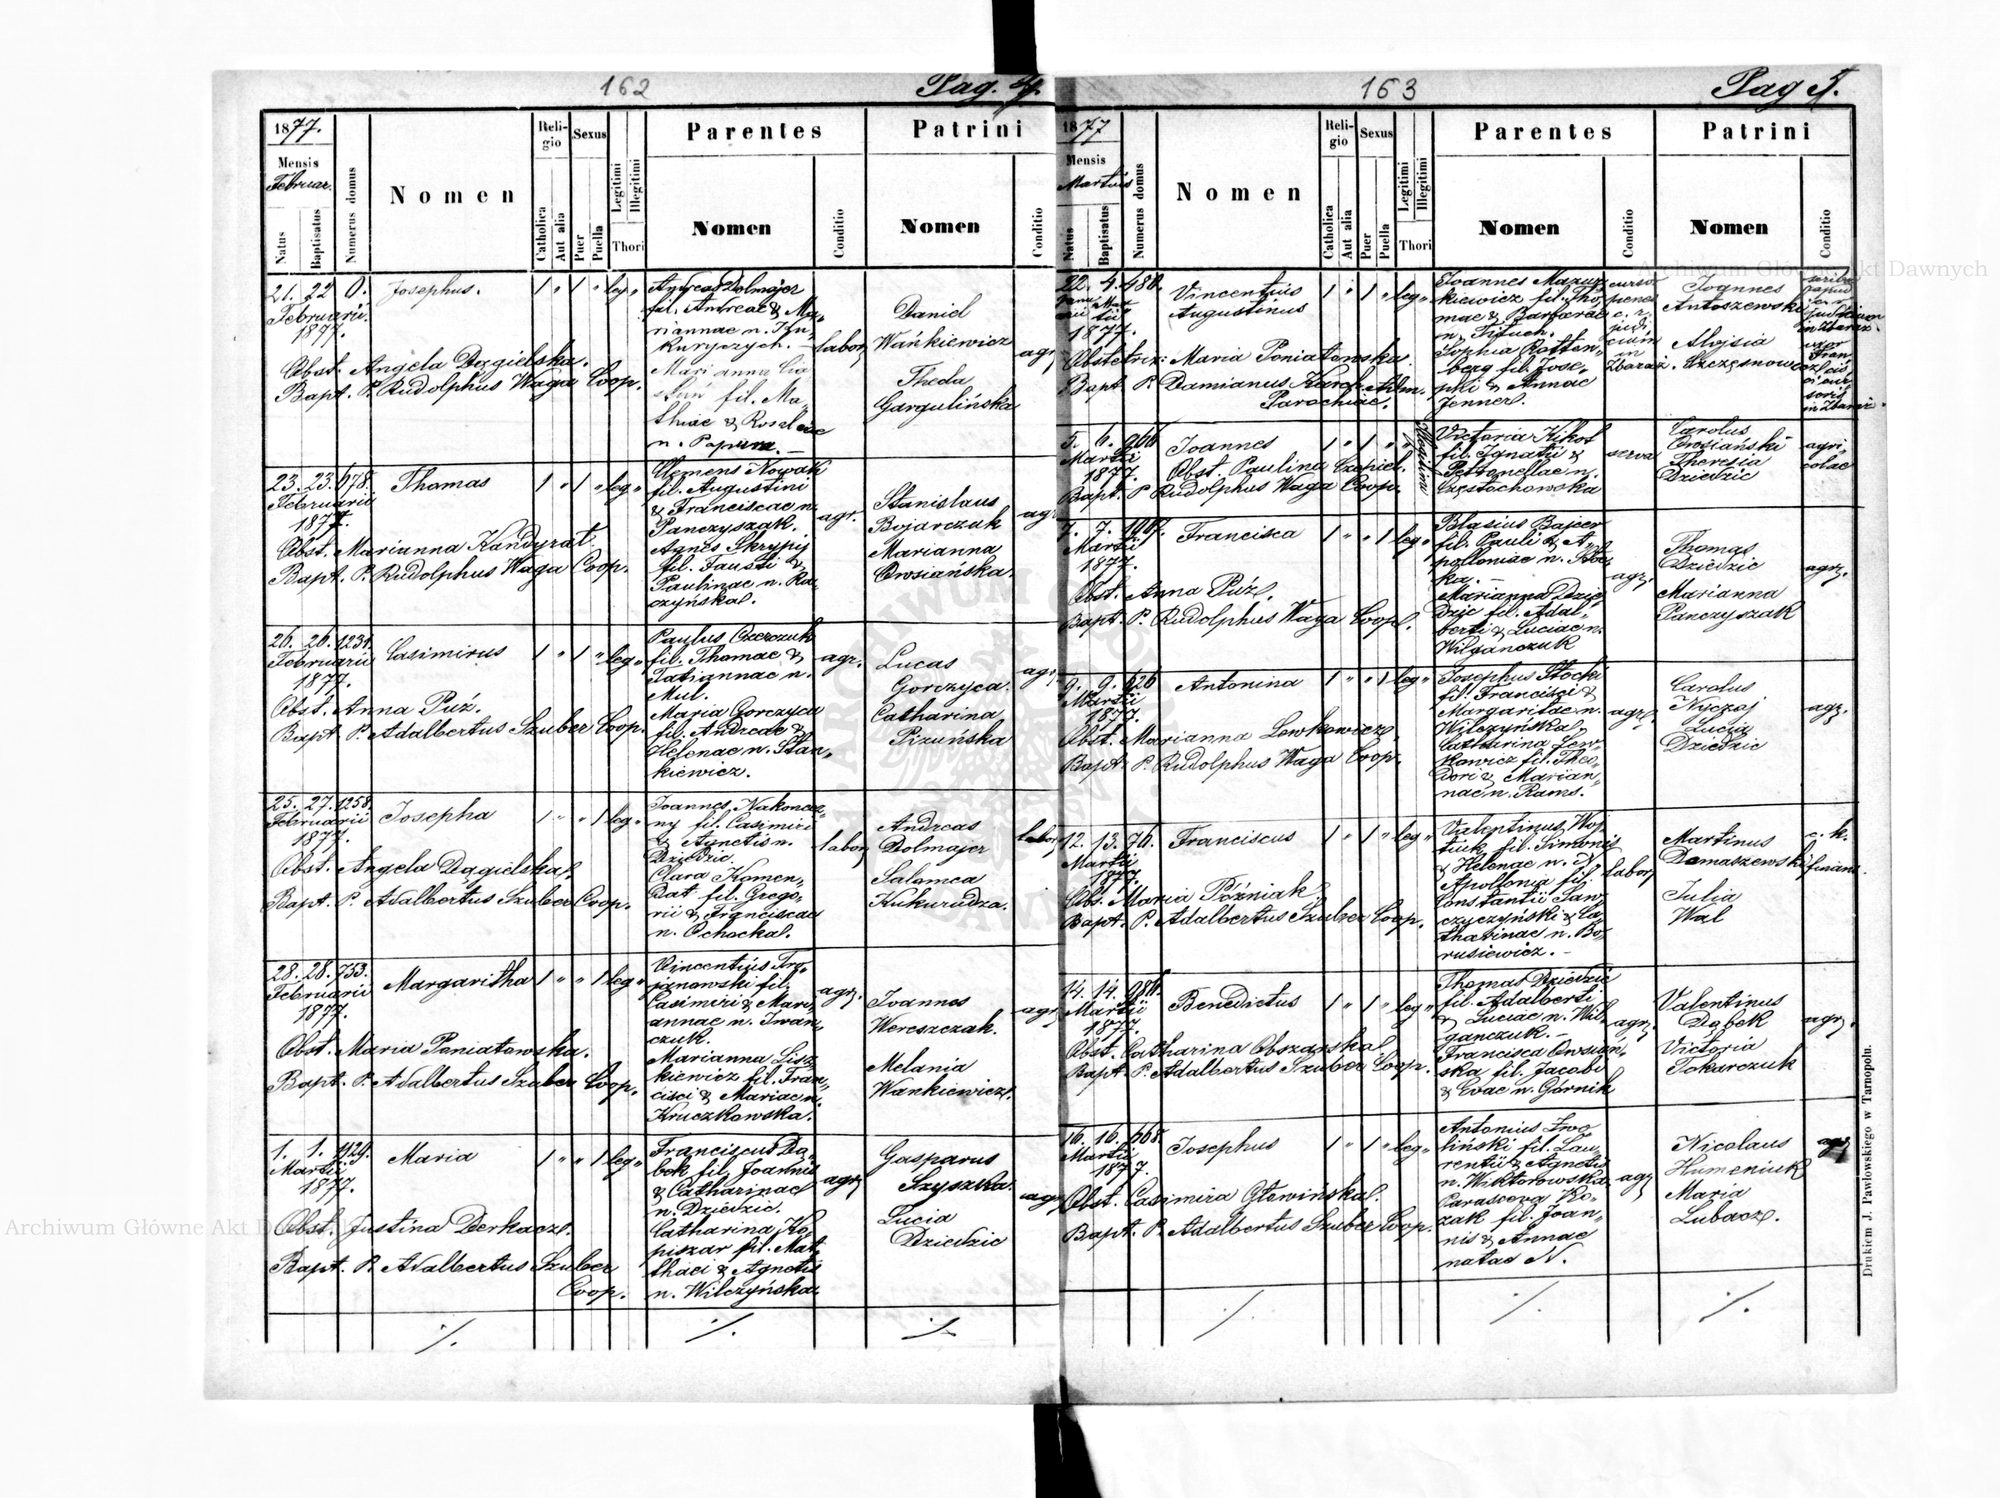 162
Pag. 4.
1877.
Mensis
Februar.
Natus
Baptisatus
Numerus domus
Nomen
Religio
Catholica
Aut alia
Sexus
Puer
Puella
Legitimi
Illegitimi
Thori
Parentes
Nomen
Conditio
Patrini
Nomen
Conditio
21. 22 0. Josephus. 1 " 1 " leg. "
Februarii
1877.
Obst. Angela Dągielska.
Bapt. P. Rudolphus Waga Coop.
Andreas Dolmajer
fil. Andreae & Ma-
riannae n.
Marianna
fil. Ma-
thiae & Rosaliae
n.
labor.
Daniel
Wańkiewicz
Thecla
Gargulińska
agr.
23. 23. 678. Thomas 1 " 1 " leg. "
Februarii
1877.
Obst. Marianna Kandyrat.
Bapt. P. Rudolphus Waga Coop.
Clemens Nowak
fil. Augustini
& Franciscae n.
Panczyszak.
Agnes Skrypij
fil. Fausti &
Paulinae n. Ra-
czyńska.
agr.
Stanislaus
Bojarczuk
Marianna
Owsiańska.
agr.
26. 26. 1231. Casimirus 1 " 1 " leg. "
Februarii
1877.
Obst. Anna Púź.
Bapt. P. Adalbertus Szuber Coop.
Paulus Owerczuk
fil. Thomae &
Tatiannae n.
Mul.
Maria Gorczyca
fil. Andreae &
Helenae n. Stan-
kiewicz.
agr.
Lucas
Gorczyca.
Catharina
Pizuńska
agr.
25. 27. 1258. Josepha 1 " " 1 leg. "
Februarii
1877.
Obst. Angela Dągielska.
Bapt. P. Adalbertus Szuber Coop.
Joannes Nakonecz-
ny fil. Casimiri
& Agnetis n.
Dziedzic.
Clara Komen-
dat fil. Grego-
rii & Franciscae
n. Ochocka.
labor.
Andreas
Dolmajer
Salomea
Kukurudza.
labor.
28. 28. 753. Margaritha 1 " " 1 leg. "
Februarii
1877.
Obst. Maria Poniatowska.
Bapt. P. Adalbertus Szuber Coop.
Vincentius Tro-
janowski fil.
Casimiri & Mari-
annae n. Iwan-
czuk.
Marianna Lisz-
kiewicz fil. Fran-
cisci & Mariae n.
Kruczkowska.
agr.
Joannes
Wereszczak.
Melania
Wankiewicz.
agr.
1. 1. 1129. Maria 1 " " 1 leg. "
Martii
1877.
Obst. Justina Derkacz.
Bapt. P. Adalbertus Szuber
Coop.
Franciscus Dą-
bek fil. Joannis
& Catharinae
n. Dziedzic.
Catharina Ko-
piszar fil. Mat-
thaei & Agnetis
n. Wilczyńska.
agr.
Gasparus
Szyszka.
Lucia
Dziedzic
agr.
163
Pag 5.
1877
Mensis
Martius
Natus
Baptisatus
Numerus domus
Nomen
Religio
Catholica
Aut alia
Sexus
Puer
Puella
Legitimi
Illegitimi
Thori
Parentes
Nomen
Conditio
Patrini
Nomen
Conditio
22. 4. 480. Vincentius 1 " 1 " leg. "
Augustinus
1877.
Obstetrix: Maria Poniatowska.
Bapt. P. Damianus Adm.
Parochiae.
Joannes Mazur-
kiewicz fil. Tho-
mae & Barbarae
n. Tituch.
Sophia Rotten-
berg fil. Jose-
phi & Annae
Jenner.
Joannes
Antoszewski
Aloisia
Szczęsnowicz
5. 6. 966 Joannes 1 " 1 " Illegitimi
Martii
1877.
Obst. Paulina Czepiel.
Bapt. P. Rudolphus Waga Coop.
Victoria Kikot
fil. Ignatii &
Petronellae n.
Częstochowska
serva
Carolus
Owsiański
Theresia
Dziedzic
agri-
colae
7. 7. 1007. Francisca 1 " " 1 leg. "
Martii
1877.
Obst. Anna Púź.
Bapt. P. Rudolphus Waga Coop.
Blasius Bajcer
fil. Pauli & A-
polloniae n.
Marianna Dzie-
dzic fil. Adal-
berti & Luciae n.
Wilganczuk
agr.
Thomas
Dziedzic
Marianna
Panczyszak
agr.
9. 9. 626 Antonina 1 " " 1 leg. "
Martii
1877.
Obst. Marianna Lewkowicz.
Bapt. P. Rudolphus Waga Coop.
Josephus Stocki
fil. Francisci &
Margaritae n.
Wilczyńska.
Catharina Lew-
kowicz fil. Theo-
dori & Marian-
nae n. Rams.
agr.
Carolus
Kyczaj
Lucia
Dziedzic
agr.
12. 13. 76. Franciscus 1 " 1 " leg. "
Martii
1877.
Obs. Maria Póżniak.
Bapt. P. Adalbertus Szuber Coop.
Valentinus Woj-
tiuk fil. Simonis
& Helenae n. N.
Apollonia fil.
Constantii San-
czyczyński & Ca-
tharinae n. Bo-
rusiewicz.
labor.
Martinus
Domaszewski
Julia
Wal
c. k.
finans.
14. 14. 986. Benedictus 1 " 1 " leg. "
Martii
1877.
Obst. Catharina Obszarska.
Bapt. P. Adalbertus Szuber Coop.
Thomas Dziedzic
fil. Adalberti
& Luciae n. Wil-
ganczuk.
Francisca Owsian-
ska fil. Jacobi
& Evae n. Górnik
agr.
Valentinus
Dąbek
Victoria
Tokarczuk
agr.
16. 16. 668. Josephus 1 " 1 " leg. "
Martii
1877.
Obst. Casimira Głowińska.
Bapt. P. Adalbertus Szuber Coop.
Antonius Iwo-
liński fil. Lau-
rentii & Agnetis
n. Wiktorowska
Parascewa Ko-
zak fil. Joan-
nis & Annae
natae N.
agr.
Nicolaus
Humeniuk
Maria
Lubacz.
agr.
Drukiem J. Pawłowskiego w Tarnopolu.
Archiwum Główne Akt Dawnych
Archiwum Główne Akt Dawnych